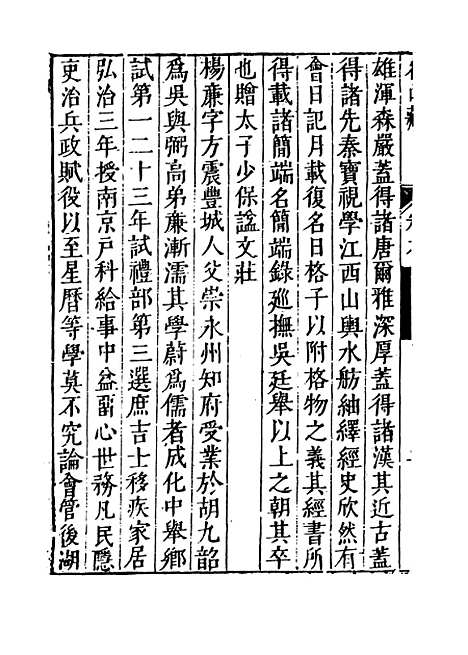 雄渾森嚴蓋得諸唐爾雅深厚蓋得諸漢其近古蓋
得諸先秦寶視學江西山輿水舫紬繹經史欣然有
會日記月載復名曰格子以附格物之義其經書所
得載諸簡端名簡端錄廵撫吳廷舉以上之朝其卒
也贈太子少保諡文莊
楊廉字方震豐城人父崇永州知府受業於胡九韶
爲吳與弼高弟廉漸濡其學蔚爲儒者成化中舉鄉
試第一二十三年試禮部第三選庶吉士移疾家居
弘治三年授南京戸科給事中益留心世務凡民隱
吏治兵政賦役以至星曆等學莫不究論會管後湖